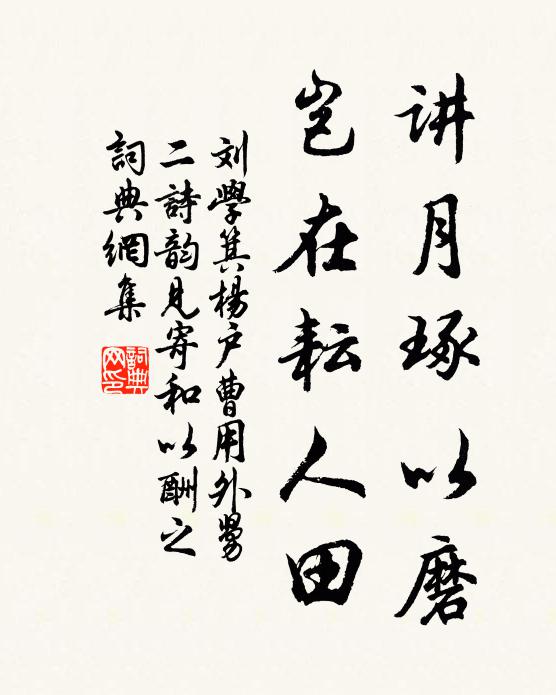 讲月琢以磨
岂在耘人田
刘學箕楊户曹用外舅
二詩韵見寄和以酬之
詞典網集
詞典网印